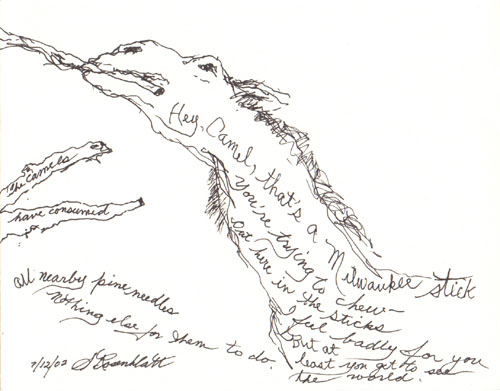 Hey, Camel, that's a Milwaukee stick
you're trying to chew—
Out here in the sticks
I feel badly for you
But at
least you get to see
the world.
The camels
have consumed
All nearby pine needles
Nothing else for them to do.
7/12/02 S Rosenblatt